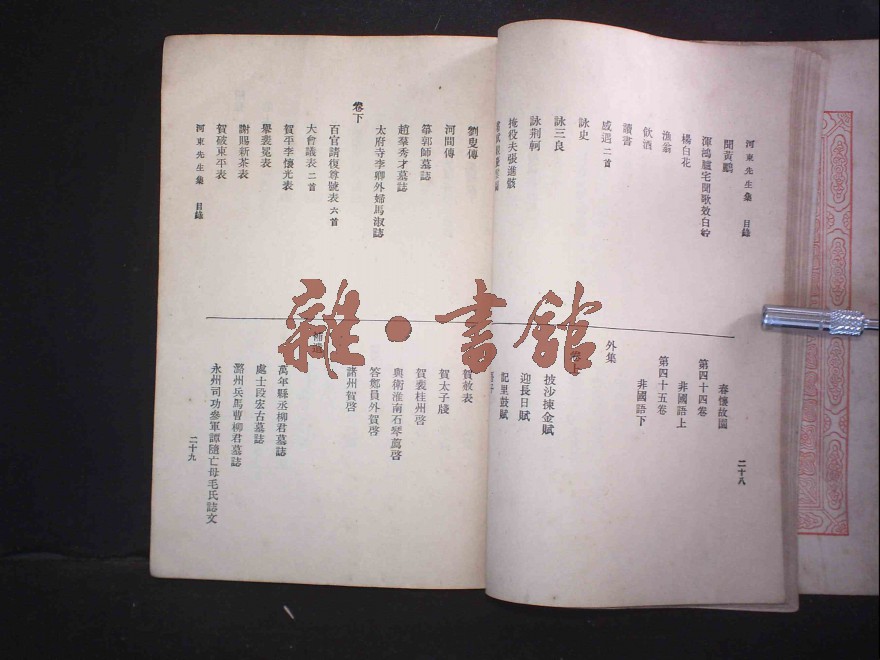 河東先生集 目錄
聞黃鸝
渾鴻臚宅聞歌效白紵
楊白花
漁翁
飲酒
讀書
感遇二首
詠史
詠三良
詠荆軻
掩役夫張進骸
春懷故園
第四十四卷
非國語上
第四十五卷
非國語下
外集
卷上
披沙揀金賦
迎長日賦
記里鼓賦
二十八
劉叟傳
河間傳
箏郭師墓誌
趙羣秀才墓誌
太府寺李卿外婦馬淑誌
卷下
百官請復尊號表六首
大會議表二首
賀平李懷光表
舉裴冕表
謝賜新茶表
賀破東平表
河東先生集 目錄
賀赦表
賀太子牋
賀裴桂州啓
與衛淮南石琴薦啓
答鄭員外賀啓
諸州賀啓
補遺
萬年縣丞柳君墓誌
處士段宏古墓誌
潞州兵馬曹柳君墓誌
永州司功參軍譚隨亡母毛氏誌文
二十九
雜·書館